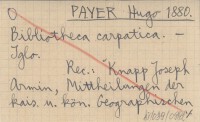 O PAYER Hugo 1880.
Bibliotheca carpatica. -
Iglo.
Rec.: Knapp Joseph
Armin, Mittheilungen der
kais. u. kön. Geographischen